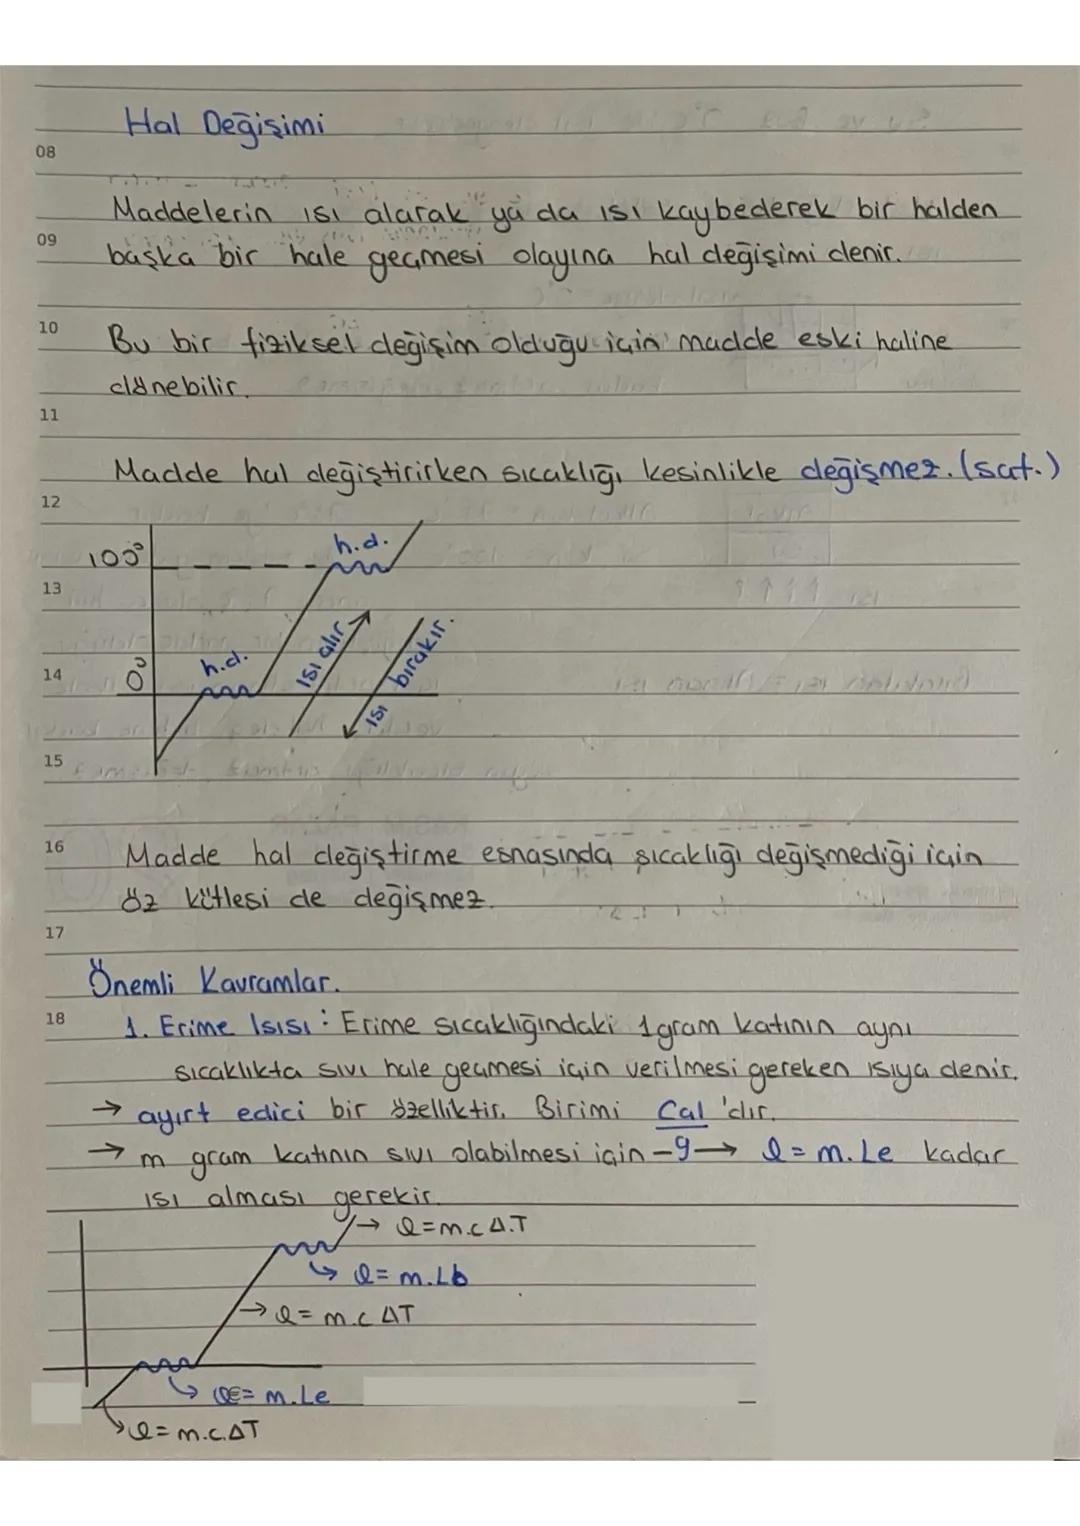 Hal Değişimi
08
Maddelerin ısı alarak ya da ısı kaybederek bir halden
09
başka bir hale geçmesi olayına hal değişimi denir.
10
Bu bir fiziksel değişim olduğu için madde eski haline
dönebilir.
11
Madde hal değiştirirken sıcaklığı kesinlikle değişmez. (saf.)
12
100°
h.d.
13
ısı alır
ısı bırakır.
14
0°
h.d.
15
16
Madde hal değiştirme esnasında sıcaklığı değişmediği için
öz kütlesi de değişmez.
17
Önemli Kavramlar.
18
1. Erime Isısı: Erime sıcaklığındaki 1 gram katının aynı
sıcaklıkta sıvı hale geçmesi için verilmesi gereken ısıya denir.
→ ayırt edici bir özelliktir. Birimi Cal 'dır.
→ m gram katının sıvı olabilmesi için -g→ Q = m.Le kadar
ısı alması gerekir.
→ Q=m.c Δ.T
↳ Q= m.Lb
→ Q= m.c ΔT
↳ QE= m.Le
↘ Q= m.c.ΔT